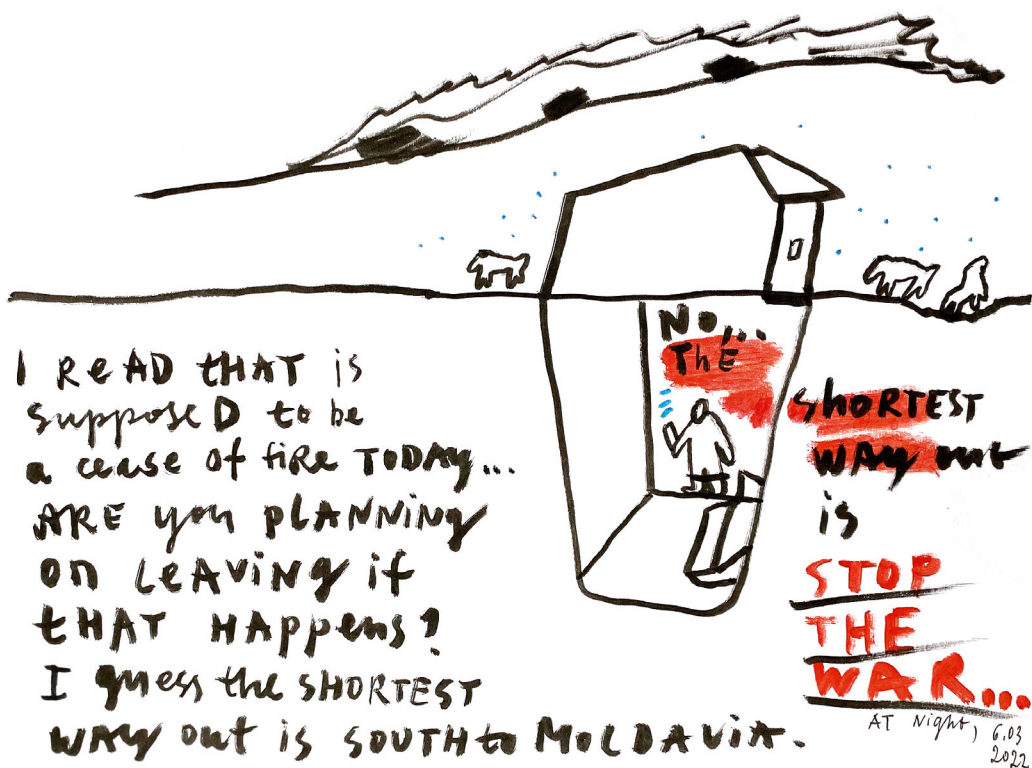 I READ tHAT is
supposeD to be
a cease of fiRe TODAy...
ARE you plANNiNg
on LEAViNg if
tHAT HAppens?
I guess the SHORTEST
wAy out is SOUTH to MOLDAViA.
No,...
ThE
shoRTEST
wAy out
is
STOP
THE
WAR...
AT Night, 6.03
2022